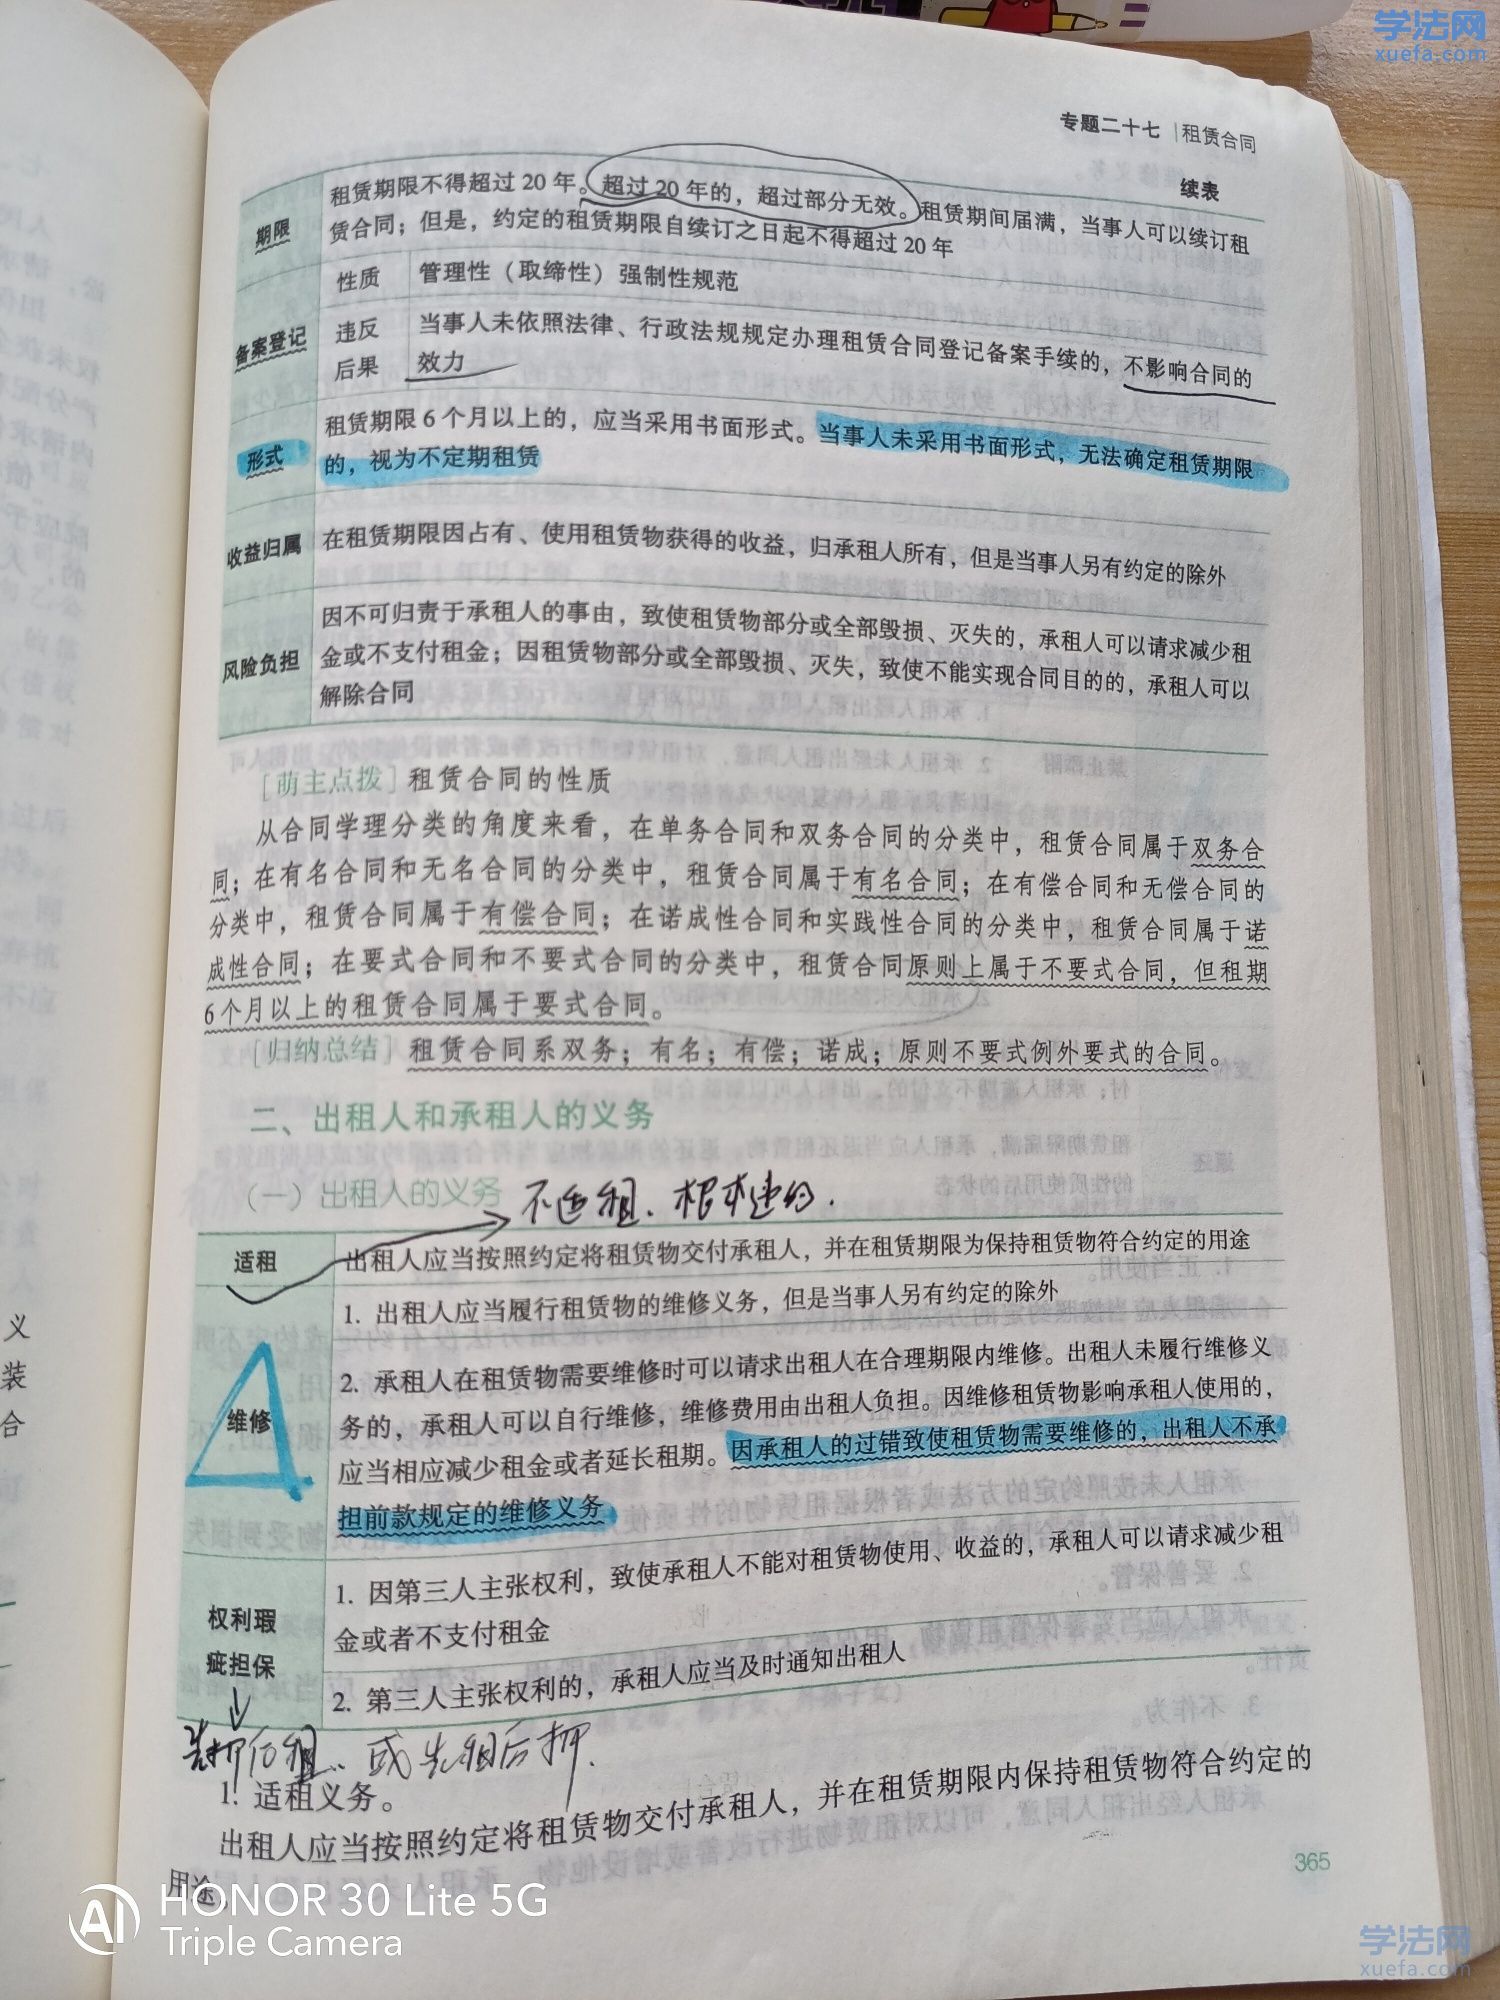 学法网
xuefa.com
专题二十七 | 租赁合同
续表
期限
租赁期限不得超过 20 年。超过 20 年的，超过部分无效。租赁期间届满，当事人可以续订租
赁合同；但是，约定的租赁期限自续订之日起不得超过 20 年
备案登记
性质
管理性（取缔性）强制性规范
违反
后果
当事人未依照法律、行政法规规定办理租赁合同登记备案手续的，不影响合同的
效力
形式
租赁期限 6 个月以上的，应当采用书面形式。当事人未采用书面形式，无法确定租赁期限
的，视为不定期租赁
收益归属
在租赁期限因占有、使用租赁物获得的收益，归承租人所有，但是当事人另有约定的除外
风险负担
因不可归责于承租人的事由，致使租赁物部分或全部毁损、灭失的，承租人可以请求减少租
金或不支付租金；因租赁物部分或全部毁损、灭失，致使不能实现合同目的的，承租人可以
解除合同
［萌主点拨］租赁合同的性质
从合同学理分类的角度来看，在单务合同和双务合同的分类中，租赁合同属于双务合
同；在有名合同和无名合同的分类中，租赁合同属于有名合同；在有偿合同和无偿合同的
分类中，租赁合同属于有偿合同；在诺成性合同和实践性合同的分类中，租赁合同属于诺
成性合同；在要式合同和不要式合同的分类中，租赁合同原则上属于不要式合同，但租期
6个月以上的租赁合同属于要式合同。
［归纳总结］租赁合同系双务；有名；有偿；诺成；原则不要式例外要式的合同。
二、出租人和承租人的义务
（一）出租人的义务
不适租、根本违约.
适租
出租人应当按照约定将租赁物交付承租人，并在租赁期限为保持租赁物符合约定的用途
维修
1. 出租人应当履行租赁物的维修义务，但是当事人另有约定的除外
2. 承租人在租赁物需要维修时可以请求出租人在合理期限内维修。出租人未履行维修义
务的，承租人可以自行维修，维修费用由出租人负担。因维修租赁物影响承租人使用的，
应当相应减少租金或者延长租期。因承租人的过错致使租赁物需要维修的，出租人不承
担前款规定的维修义务
权利瑕
疵担保
1. 因第三人主张权利，致使承租人不能对租赁物使用、收益的，承租人可以请求减少租
金或者不支付租金
2. 第三人主张权利的，承租人应当及时通知出租人
先押后租.. 或先租后押.
1. 适租义务。
出租人应当按照约定将租赁物交付承租人，并在租赁期限内保持租赁物符合约定的
用途。
365
义
装
合
HONOR 30 Lite 5G
Triple Camera
学法网
xuefa.com